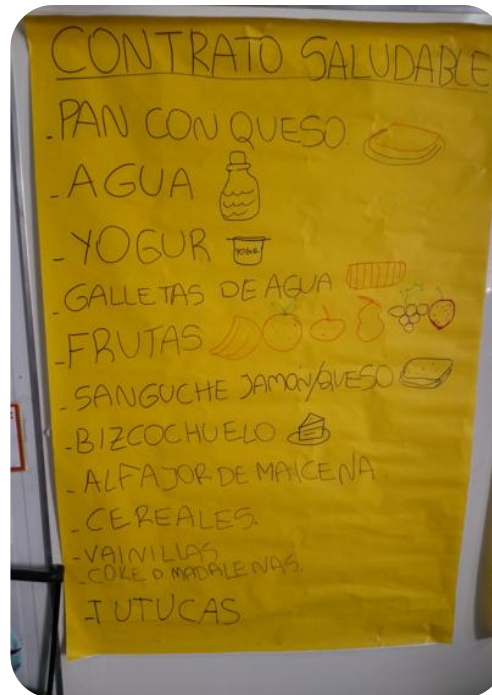 CONTRATO SALUDABLE
.PAN CON QUESO.
-AGUA
-YOGUR YOGUR
-GALLETAS DE AGUA
-FRUTAS
-SANGUCHE JAMÓN/QUESO
-BIZCOCHUELO
-ALFAJOR DE MAICENA
-CEREALES.
-VAINILLAS
-COKE O MADALENAS.
-TUTUCAS